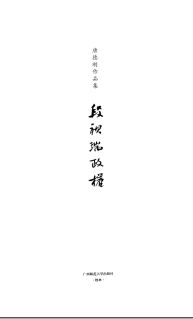 唐德刚作品集
段祺瑞政權
广西师范大学出版社
·桂林·